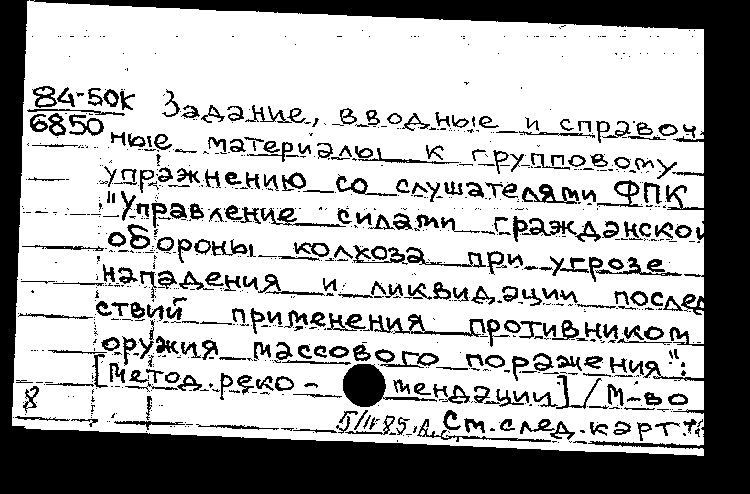 84-50К Задание, вводные и справоч-
6850 ные материалы к групповому
упражнению со слушателями ФПК
"Управление силами гражданской
обороны колхоза при угрозе
нападения и ликвидации послед
ствий применения противником
оружия массового поражения":
[Метод. реко- мендации] / М-во
8
5/IV 85. А.С. См. след. карт.